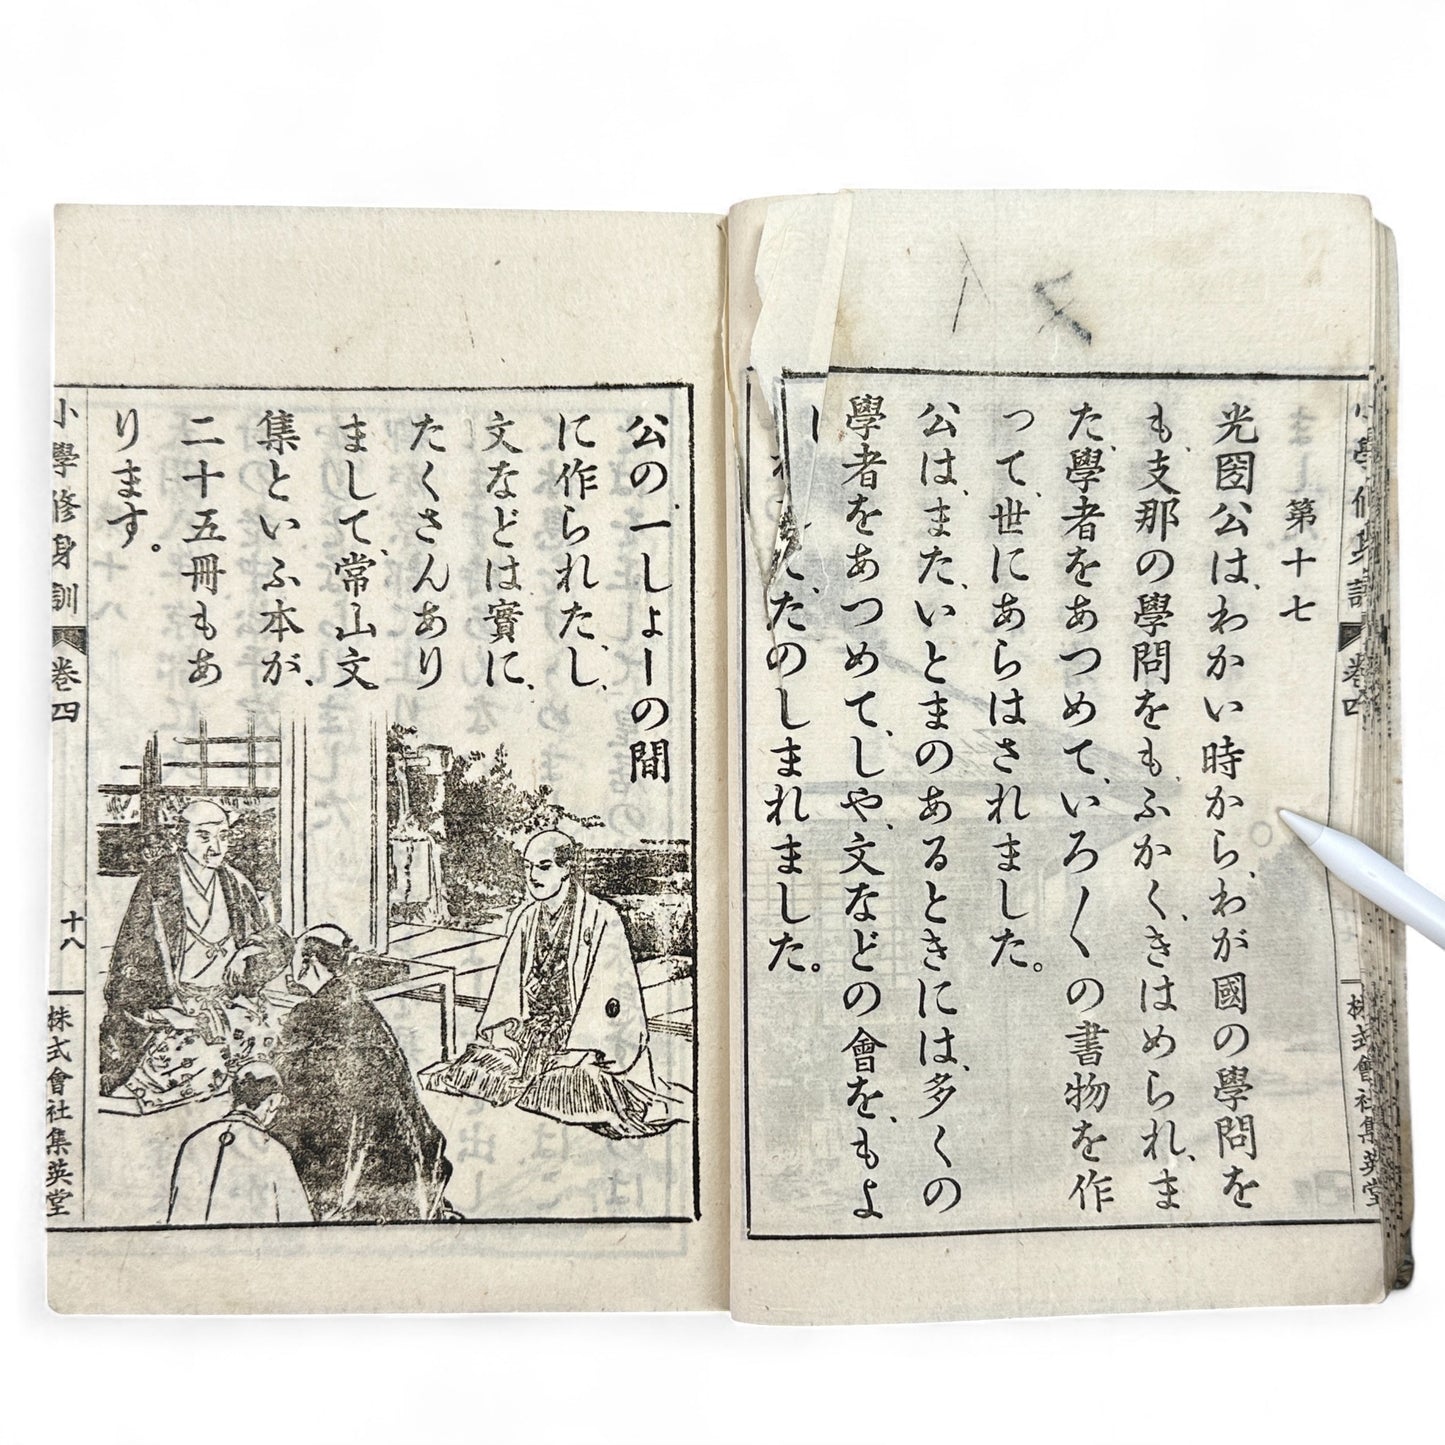 小學修身訓
巻四
株式會社集英堂
第十七
光圀公は、わかい時から、わが國の學問を
も、支那の學問をも、ふかく、きはめられ、ま
た、學者をあつめて、いろ〱の書物を作
つて、世にあらはされました。
公は、また、いとまのあるときには、多くの
學者をあつめて、しや、文などの會を、もよ
たのしまれました。
公の、一しよーの間
に作られた、し、
文などは、實に、
たくさんあり
まして、常山文
集といふ本が、
二十五冊もあ
ります。
小學修身訓
巻四
十八
株式會社集英堂